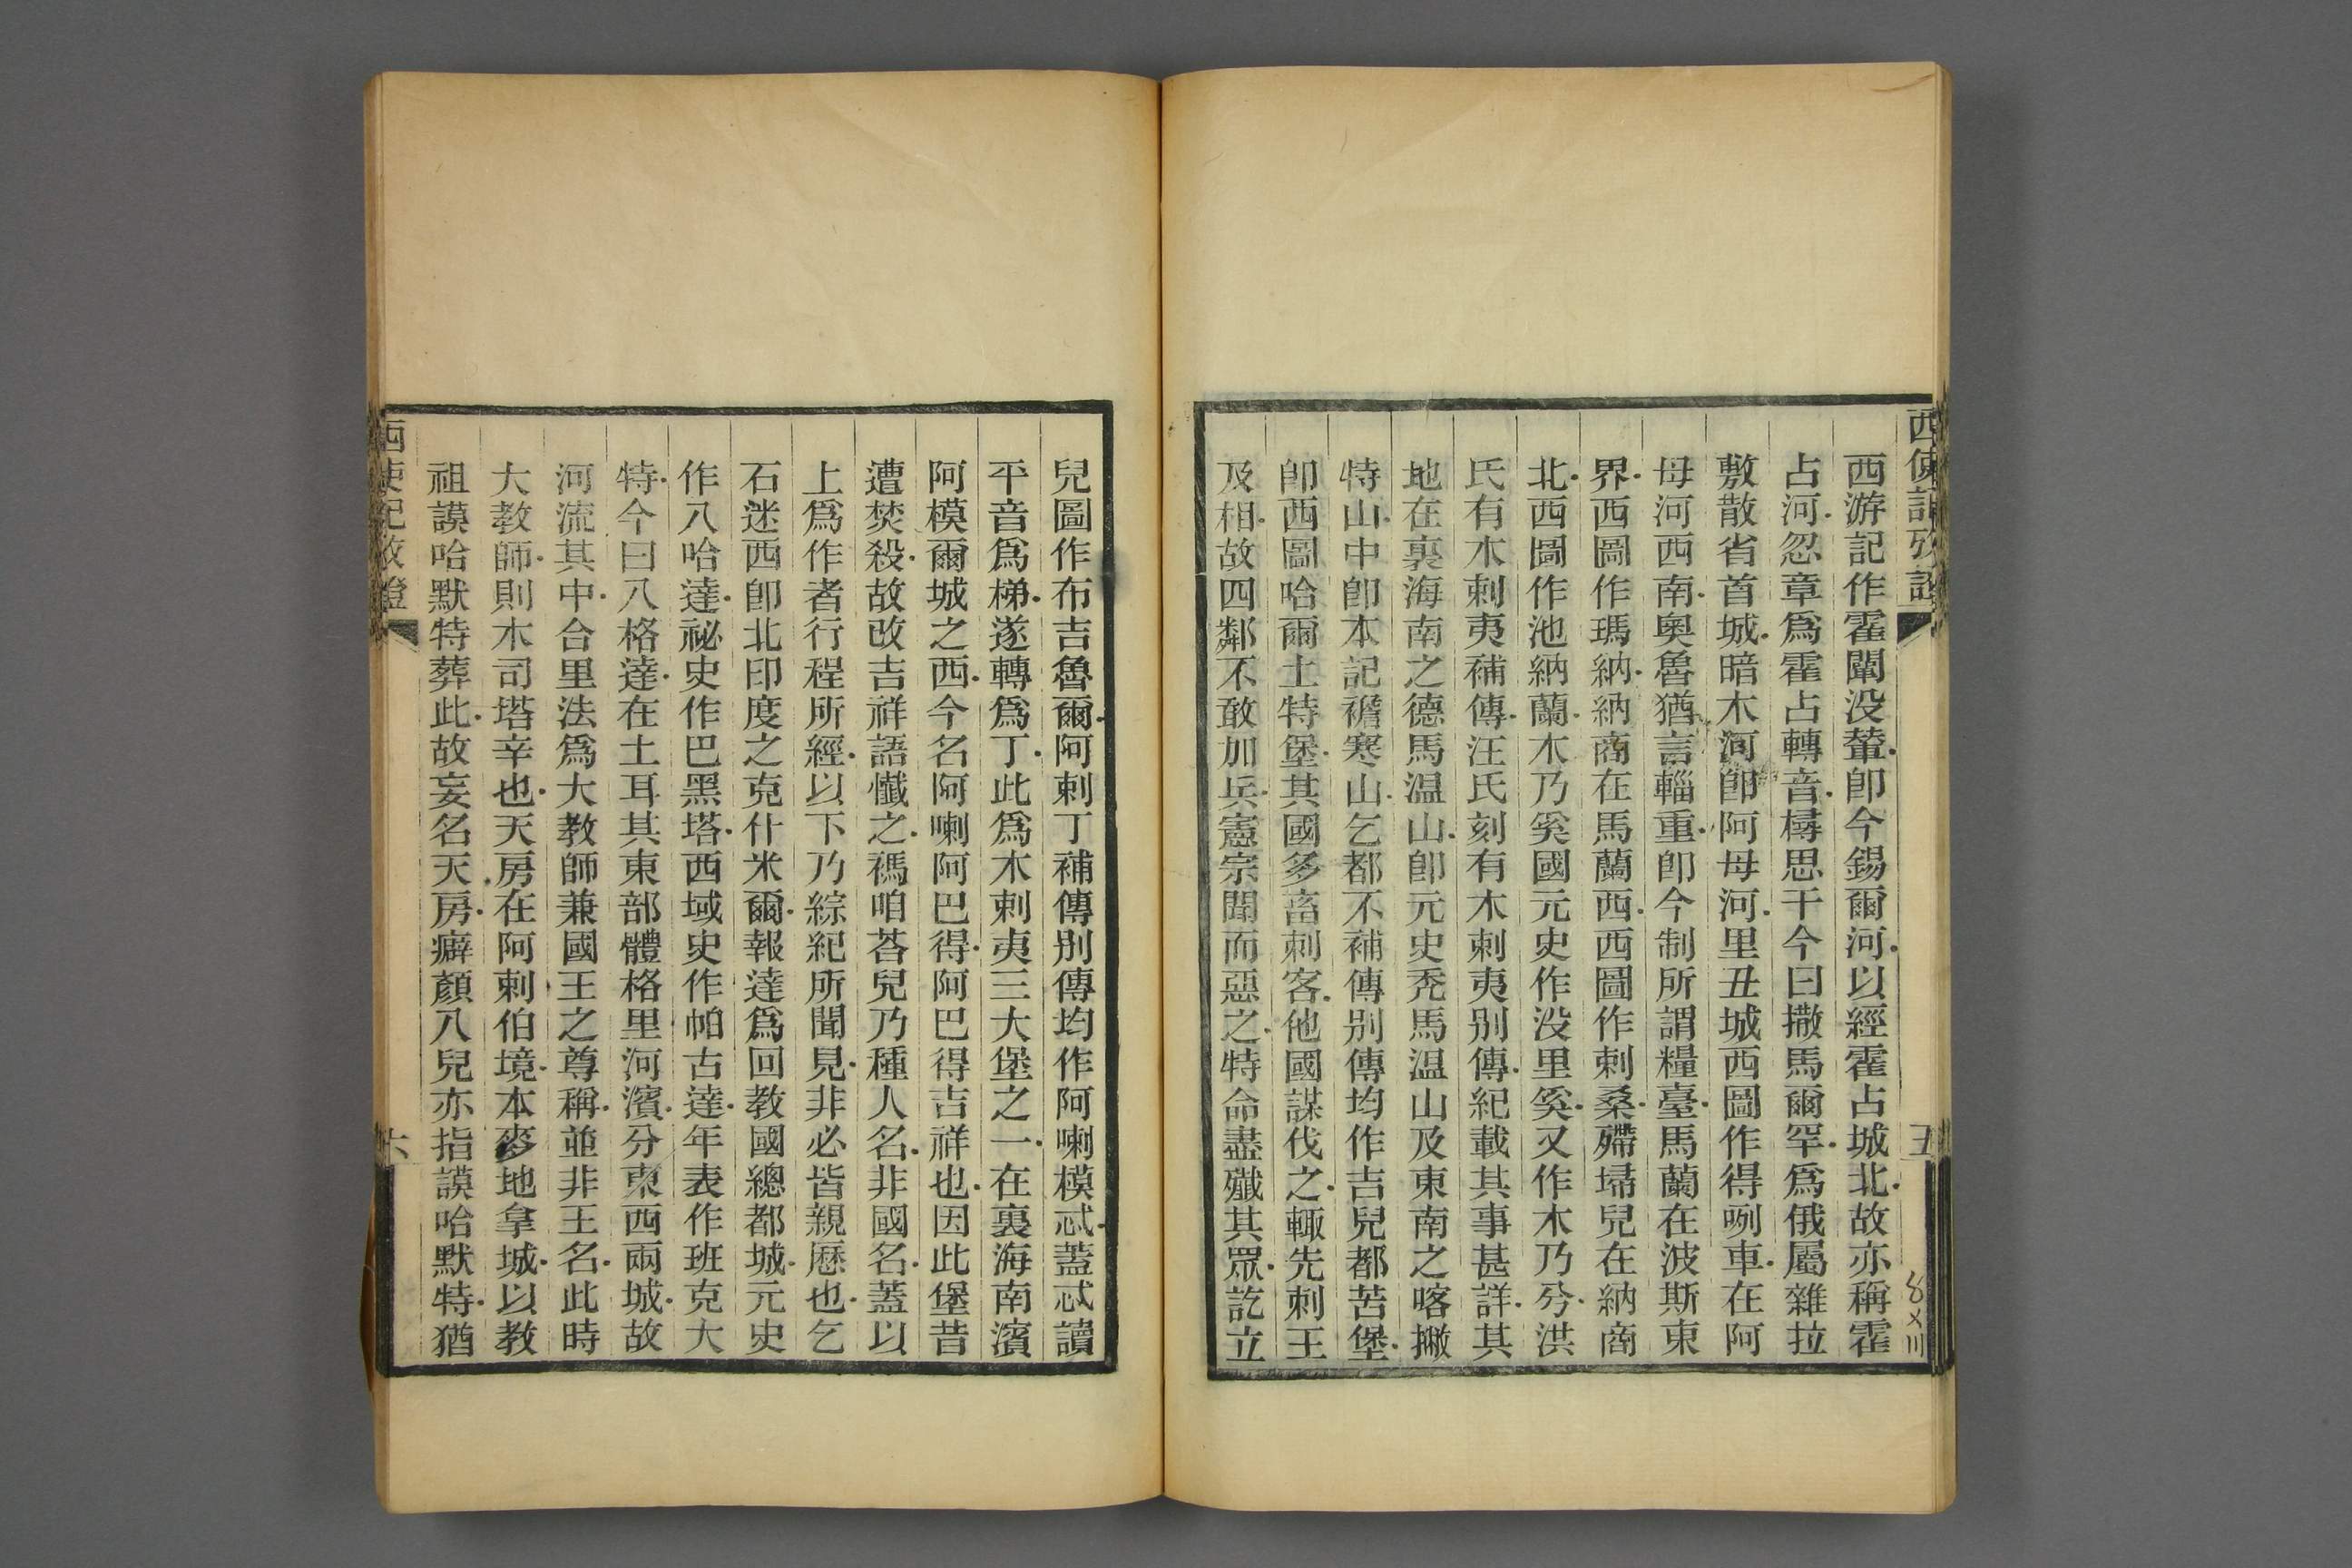 西使記攷證
五
西游記作霍闡没輦即今錫爾河以經霍占城北故亦稱霍
占河忽章爲霍占轉音㭫思干今曰撒馬爾罕爲俄屬雜拉
敷散省首城暗木河即阿母河里丑城西圖作得咧車在阿
母河西南奥魯猶言輜重即今制所謂糧臺馬蘭在波斯東
界西圖作瑪納納商在馬蘭西西圖作剌桑殢埽兒在納商
北西圖作池納蘭木乃奚國元史作没里奚又作木乃兮洪
氏有木剌夷補傳汪氏刻有木剌夷别傳紀載其事甚詳其
地在裏海南之德馬温山即元史禿馬温山及東南之喀撇
特山中即本記襜寒山乞都不補傳别傳均作吉兒都苦堡
即西圖哈爾土特堡其國多畜刺客他國謀伐之輒先刺王
及相故四鄰不敢加兵憲宗聞而惡之特命盡殲其眾訖立
兒圖作布吉魯爾阿剌丁補傳别傳均作阿喇模忒蓋忒讀
平音爲梯遂轉爲丁此爲木剌夷三大堡之一在裏海南濱
阿模爾城之西今名阿喇阿巴得阿巴得吉祥也因此堡昔
遭焚殺故改吉祥語懺之禡咱荅兒乃種人名非國名蓋以
上爲作者行程所經以下乃綜紀所聞見非必皆親歷也乞
石迷西即北印度之克什米爾報達爲回教國總都城元史
作八哈達祕史作巴黑塔西域史作帕古達年表作班克大
特今曰八格達在土耳其東部體格里河濱分東西兩城故
河流其中合里法爲大教師兼國王之尊稱並非王名此時
大教師則木司塔辛也天房在阿剌伯境本麥地拿城以教
祖謨哈默特葬此故妄名天房癖顏八兒亦指謨哈默特猶
西使記攷證
六